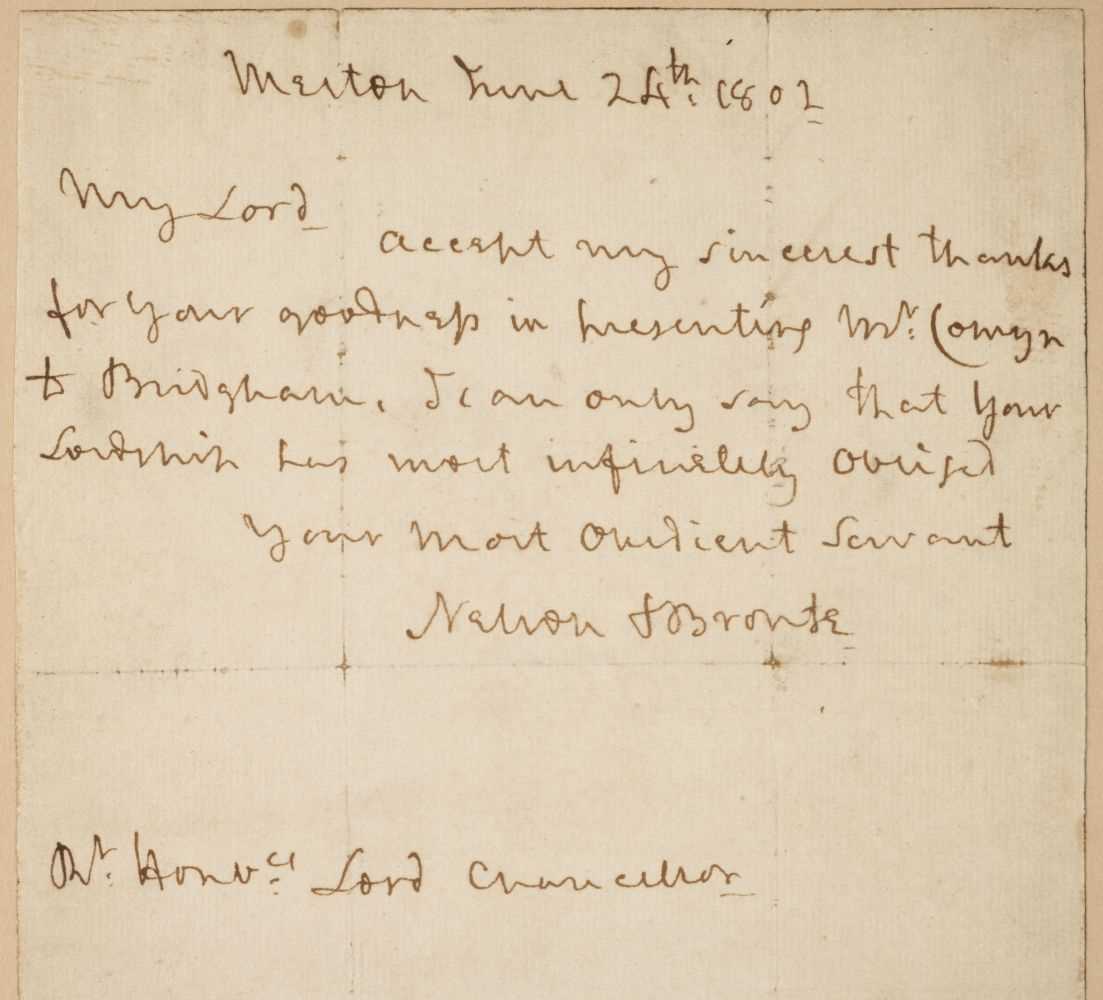 Merton June 24th: 1802
My Lord
accept my sincerest thanks
for your goodness in presenting Mr: Comyn
to Bridgham, I can only say that your
Lordship has most infinitely obliged
your most Obedient Servant
Nelson & Bronte
Rt: Honble: Lord Chancellor